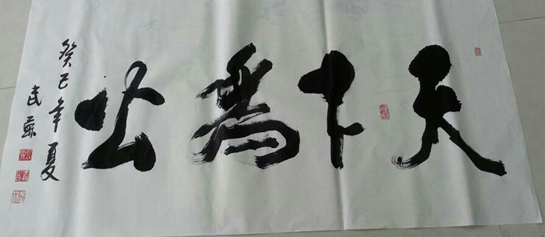 天下為公
癸巳年夏